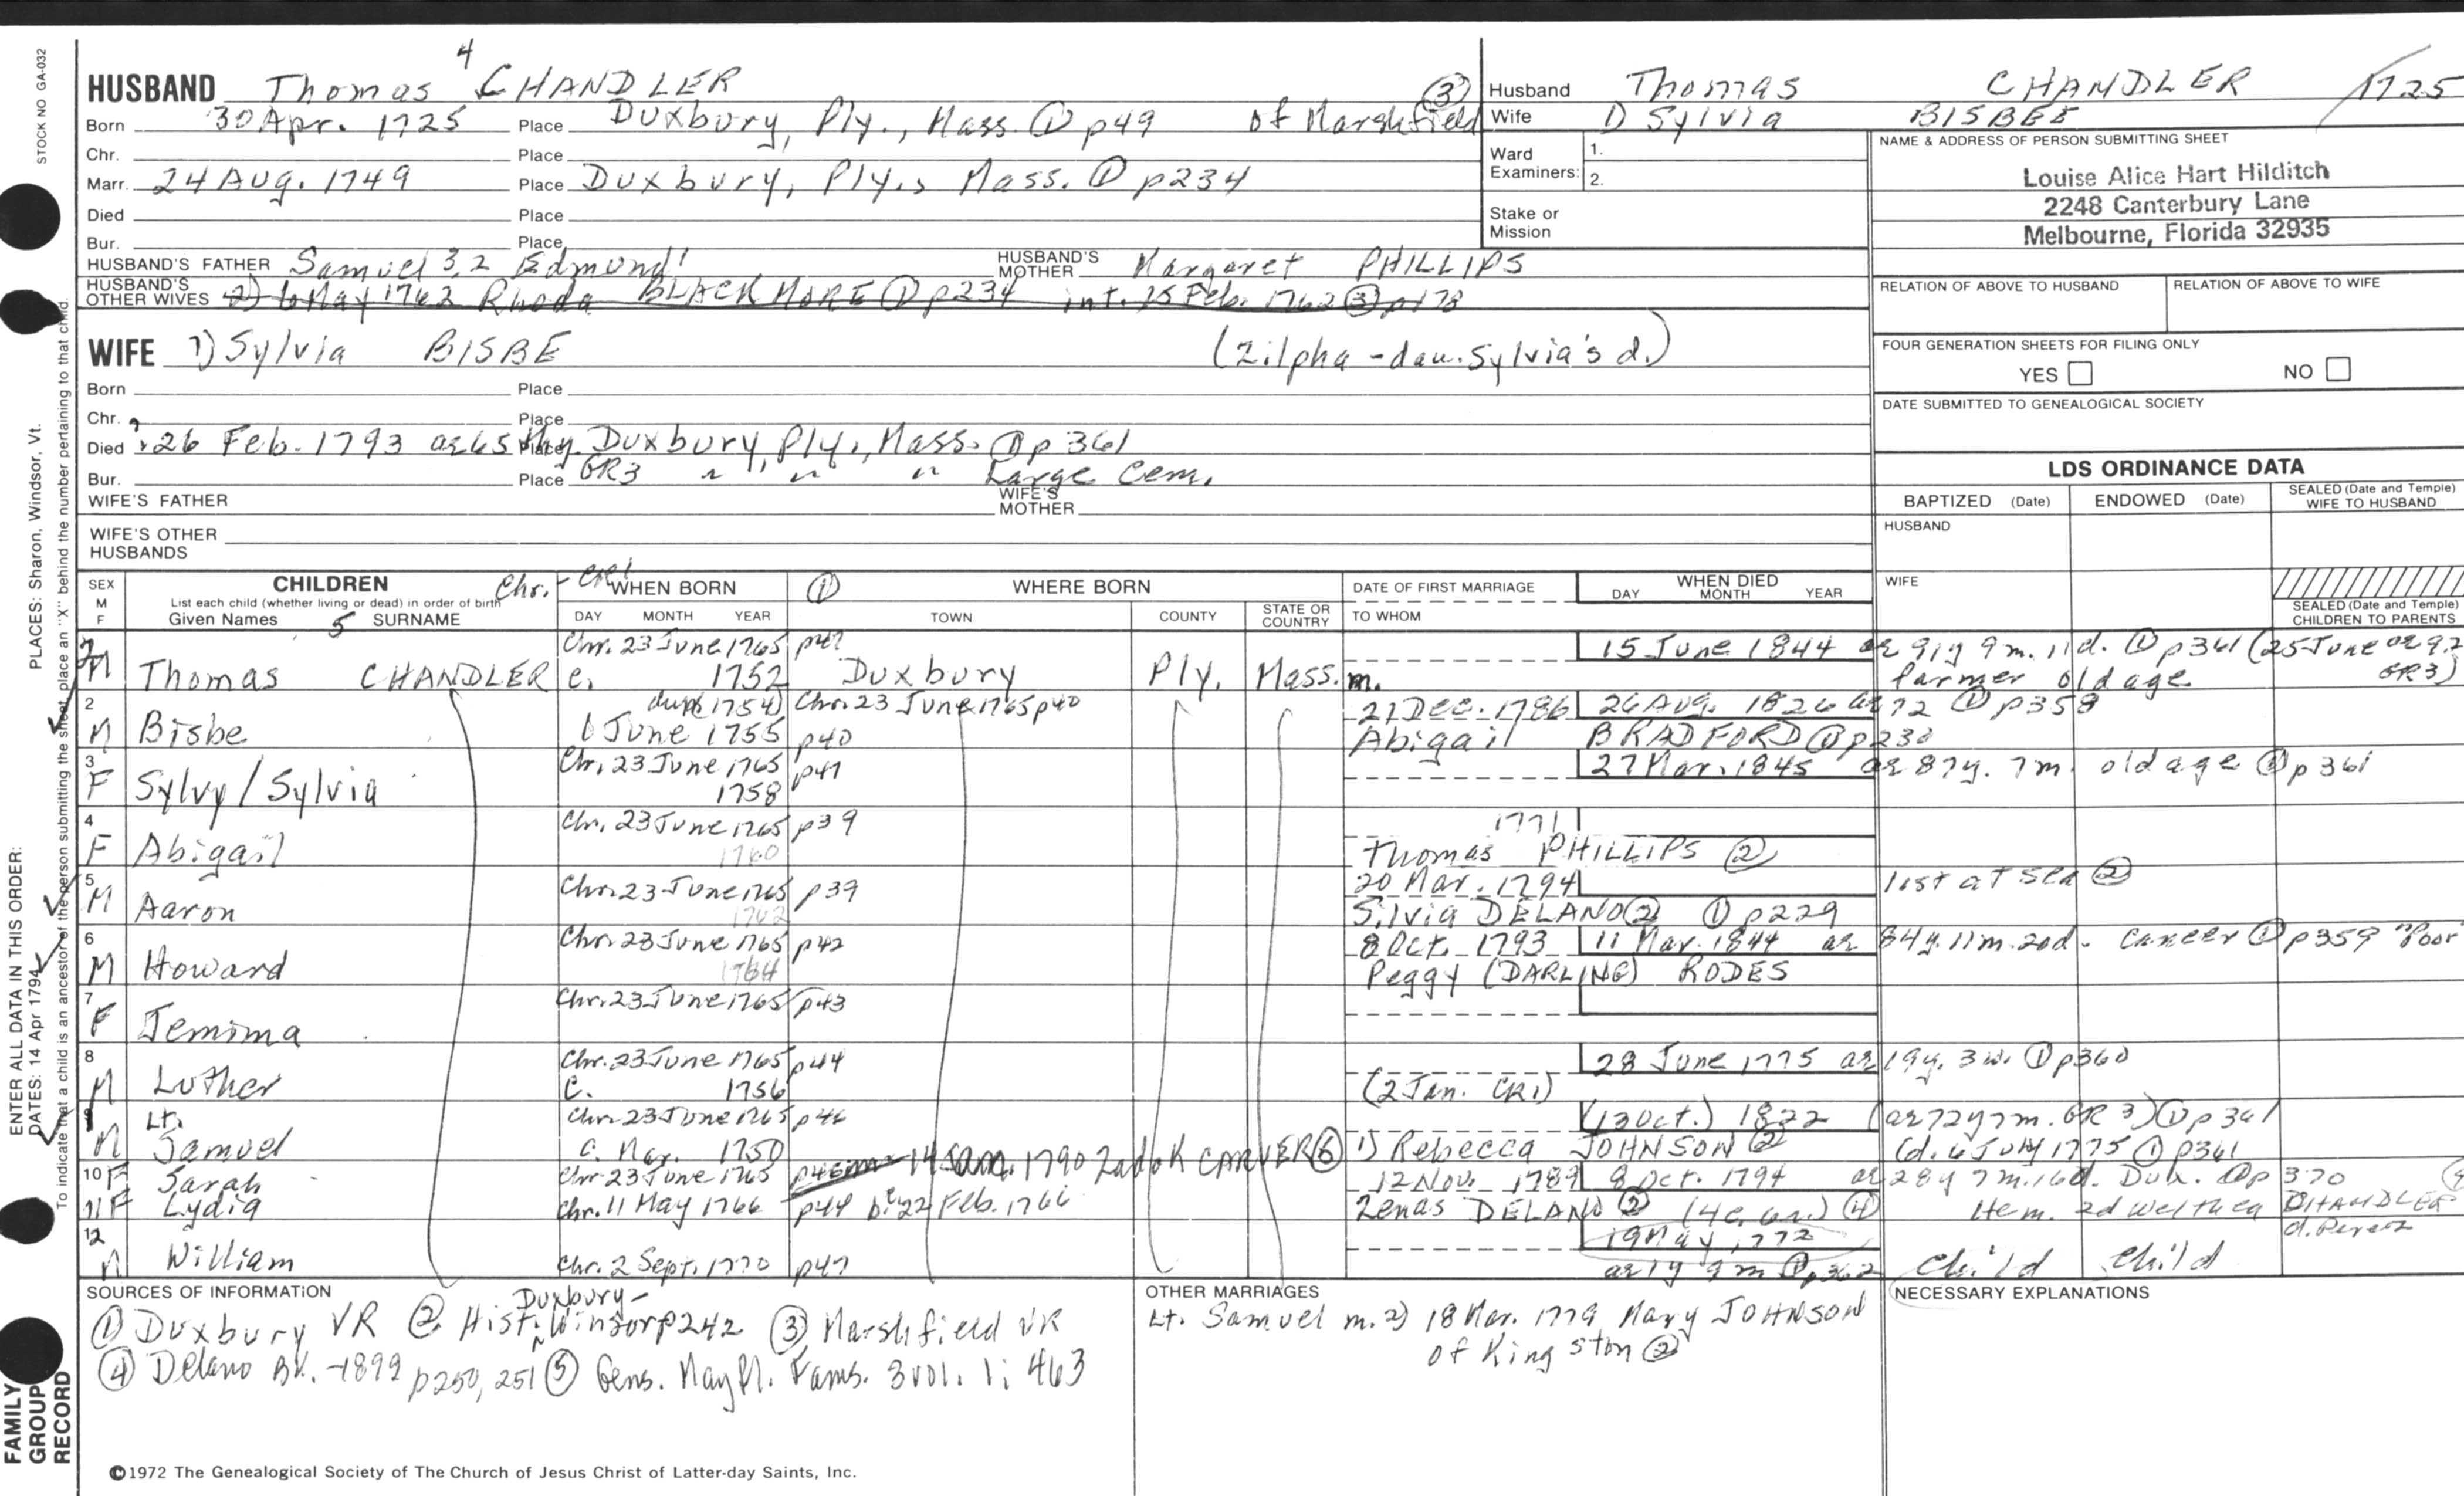 4
HUSBAND Thomas CHANDLER
Born 30 Apr. 1725 Place Duxbury, Ply., Mass. ① p49 of Marshfield ③
Chr. Place
Marr. 24 Aug. 1749 Place Duxbury, Ply., Mass. ① p234
Died Place
Bur. Place
HUSBAND'S FATHER Samuel 3,2 Edmund1 HUSBAND'S MOTHER Margaret PHILLIPS
HUSBAND'S OTHER WIVES 2) 6 May 1762 Rhoda BLACKMORE ① p234 int. 15 Feb. 1762 ③ p178
WIFE 1) Sylvia BISBE (Zilpha - dau. Sylvia's d.)
Born Place
Chr. Place
Died 26 Feb. 1793 ae 65 Place Duxbury, Ply., Mass. ① p361
Bur. Place GR3 " " " Large Cem.
WIFE'S FATHER WIFE'S MOTHER
WIFE'S OTHER HUSBANDS
Husband Thomas CHANDLER 1725
Wife D Sylvia BISBEE
Ward Examiners: 1.
2.
Stake or Mission
NAME & ADDRESS OF PERSON SUBMITTING SHEET
Louise Alice Hart Hilditch
2248 Canterbury Lane
Melbourne, Florida 32935
RELATION OF ABOVE TO HUSBAND RELATION OF ABOVE TO WIFE
FOUR GENERATION SHEETS FOR FILING ONLY
YES NO
DATE SUBMITTED TO GENEALOGICAL SOCIETY
LDS ORDINANCE DATA
BAPTIZED (Date) ENDOWED (Date) SEALED (Date and Temple) WIFE TO HUSBAND
HUSBAND
WIFE
SEALED (Date and Temple) CHILDREN TO PARENTS
SEX M F CHILDREN Chr. - CR1 WHEN BORN ① WHERE BORN DATE OF FIRST MARRIAGE WHEN DIED
List each child (whether living or dead) in order of birth
Given Names 5 SURNAME DAY MONTH YEAR TOWN COUNTY STATE OR COUNTRY TO WHOM DAY MONTH YEAR
Chr. 23 June 1765 p47 15 June 1844 ae 91y 9m. 11d. ① p361 (25 June ae 92 GR3)
M Thomas CHANDLER c. 1752 Duxbury Ply. Mass. m. farmer old age
2 1754) Chr. 23 June 1765 p40 21 Dec. 1786 26 Aug. 1826 ae 72 ① p358
M Bisbe 1 June 1755 p40 Abigail BRADFORD ① p230
3 Chr. 23 June 1765 p47 27 Mar. 1845 ae 87y. 7m. old age ① p361
F Sylvy/Sylvia 1758
4 Chr. 23 June 1765 p39 1771
F Abigail 1760 Thomas PHILLIPS ②
5 Chr. 23 June 1765 p39 20 Mar. 1794 lost at sea ②
M Aaron 1762 Silvia DELANO ② ① p229
6 Chr. 23 June 1765 p42 8 Oct. 1793 11 Mar. 1844 ae 84y. 11m. 20d. Cancer ① p359 "Poor"
M Howard 1764 Peggy (DARLING) RODES
7 Chr. 23 June 1765 p43
F Jemima
8 Chr. 23 June 1765 p44 28 June 1775 ae 19y. 3w. ① p360
M Luther c. 1756 (2 Jan. CR1)
9 Lt. Chr. 23 June 1765 p46 (13 Oct.) 1822 (ae 72y 7m. GR3) ① p361
M Samuel c. Mar. 1750 1) Rebecca JOHNSON ② (d. 6 July 1775 ① p361
10 F Sarah Chr. 23 June 1765 p46 m. 14 Jan. 1790 Zadok CARVER ⑥ 12 Nov. 1789 8 Oct. 1794 ae 28y 7m. 16d. Dux. ① p370
11 F Lydia Chr. 11 May 1766 p44 b. 22 Feb. 1766 Zenas DELANO ② ④ He m. 2d Welthea CHANDLER d. Perez
12 19 May 1772
M William Chr. 2 Sept. 1770 p47 ae 1y 9m ① p362 Child Child
SOURCES OF INFORMATION
① Duxbury VR ② Hist. Duxbury - Winsor p242 ③ Marshfield VR
④ Delano Bk. -1899 p250, 251 ⑤ Gens. Mayfl. Fams. 3 vol. 1: 463
OTHER MARRIAGES
Lt. Samuel m. 2) 18 Mar. 1779 Mary JOHNSON
of Kingston ②
NECESSARY EXPLANATIONS
©1972 The Genealogical Society of The Church of Jesus Christ of Latter-day Saints, Inc.
STOCK NO GA-032
PLACES: Sharon, Windsor, Vt.
To indicate that a child is an ancestor of the person submitting the sheet, place an "X" behind the number pertaining to that child.
ENTER ALL DATA IN THIS ORDER:
DATES: 14 Apr 1794
FAMILY GROUP RECORD